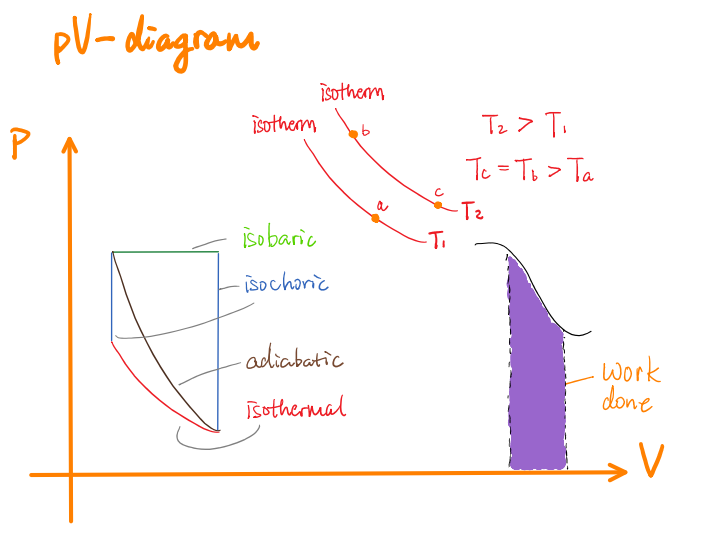 pV-diagram
P
isotherm
isotherm
b
a
c
T₁
T₂
T₂ > T₁
Tc = Tb > Ta
isobaric
isochoric
adiabatic
isothermal
work
done
V